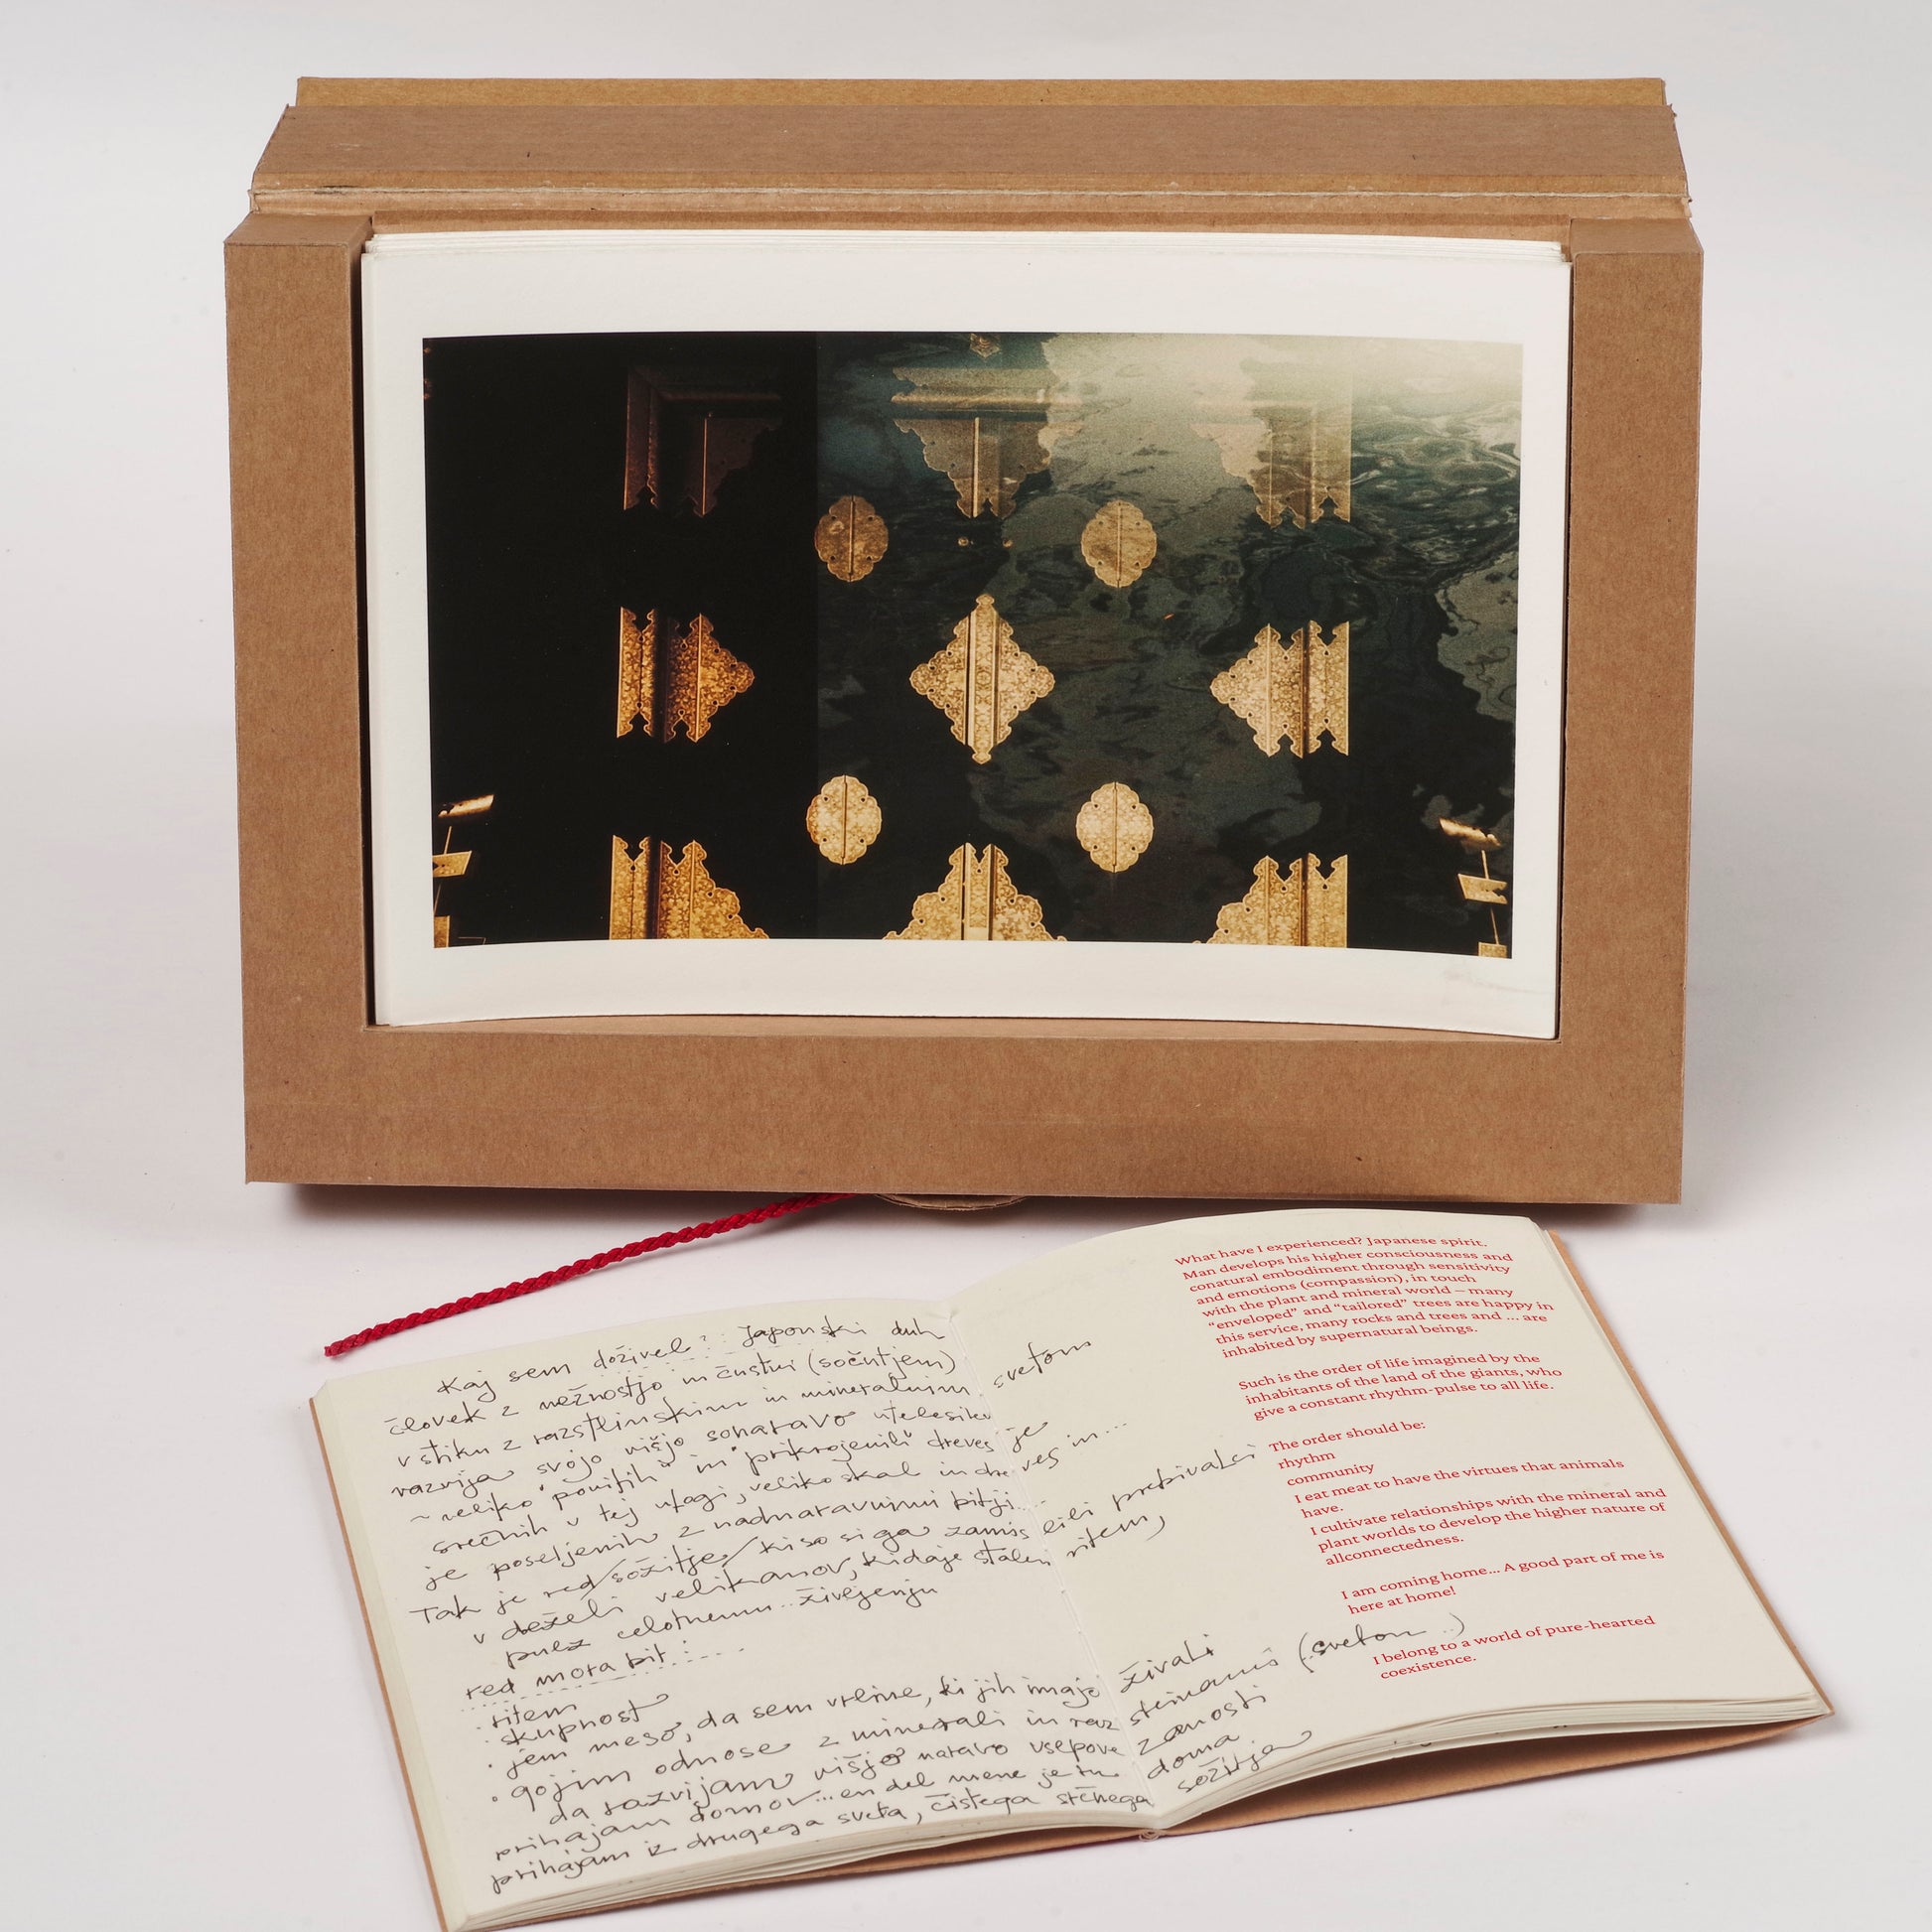 Kaj sem doživel? Japonski duh
človek z nežnostjo in čustvi (sočutjem)
v stiku z rastlinskim in mineralnim svetom
razvija svojo višjo sonaravo
~ veliko "povitih" in "prikrojenih" dreves je
srečnih v tej vlogi, veliko skal in dreves in...
je poseljenih z nadnaravnimi bitji...
Tak je red/sožitje/ki so si ga zamislili prebivalci
v deželi velikanov, ki daje stalen ritem,
pulz celotnemu življenju
red mora bit:
· ritem
· skupnost
· jem meso, da sem vrline, ki jih imajo živali
· gojim odnose z minerali in (svetom..)
da razvijam višjo naravo vsepove zanosti
prihajam domov... en del mene je tu doma
prihajam iz drugega sveta, čistega sožitja
What have I experienced? Japanese spirit.
Man develops his higher consciousness and
conatural embodiment through sensitivity
and emotions (compassion), in touch
with the plant and mineral world – many
"enveloped" and "tailored" trees are happy in
this service, many rocks and trees and ... are
inhabited by supernatural beings.
Such is the order of life imagined by the
inhabitants of the land of the giants, who
give a constant rhythm-pulse to all life.
The order should be:
rhythm
community
I eat meat to have the virtues that animals
have.
I cultivate relationships with the mineral and
plant worlds to develop the higher nature of
allconnectedness.
I am coming home... A good part of me is
here at home!
I belong to a world of pure-hearted
coexistence.